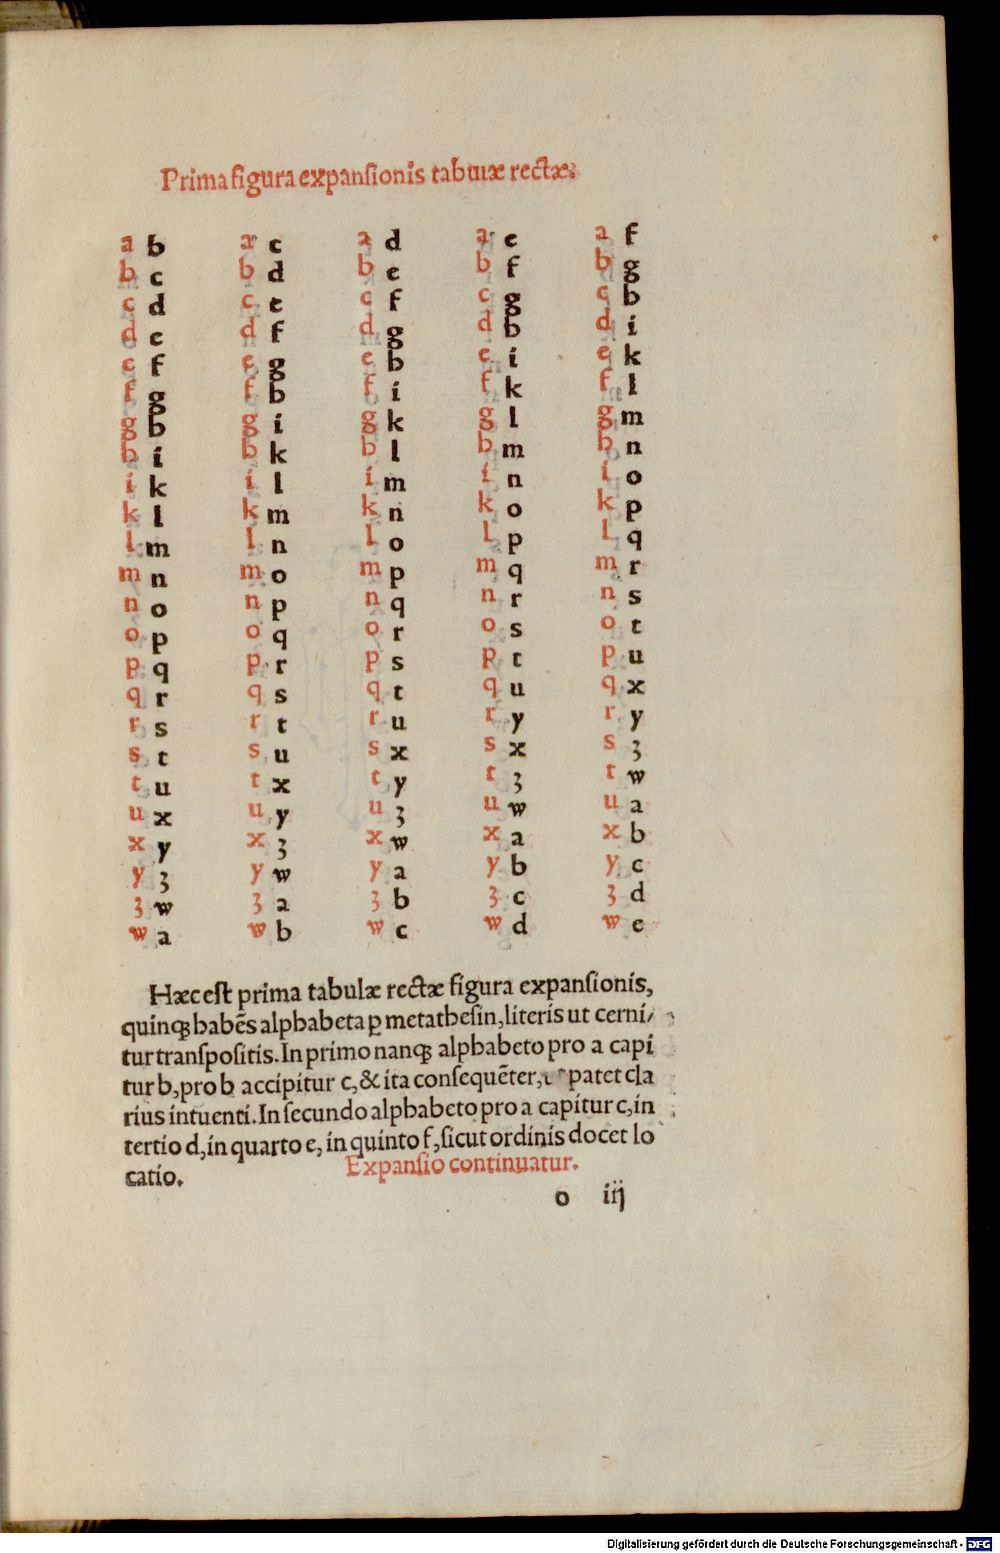 Prima figura expansionis tabulæ rectæ:
a b a c a d a e a f
b c b d b e b f b g
c d c e c f c g c h
d e d f d g d h d i
e f e g e h e i e k
f g f h f i f k f l
g h g i g k g l g m
h i h k h l h m h n
i k i l i m i n i o
k l k m k n k o k p
l m l n l o l p l q
m n m o m p m q m r
n o n p n q n r n s
o p o q o r o s o t
p q p r p s p t p u
q r q s q t q u q x
r s r t r u r y r y
s t s u s x s x s z
t u t x t y t z t w
u x u y u z u w u a
x y x z x w x a x b
y z y w y a y b y c
z w z a z b z c z d
w a w b w c w d w e
Hæc est prima tabulæ rectæ figura expansionis,
quinqꝫ habēs alphabeta ꝑ metathesin, literis ut cerni/
tur transpositis. In primo nanqꝫ alphabeto pro a capi
tur b, pro b accipitur c, & ita consequēter, patet cla
rius intuenti. In secundo alphabeto pro a capitur c, in
tertio d, in quarto e, in quinto f, sicut ordinis docet lo
catio. Expansio continuatur.
o iij
Digitalisierung gefördert durch die Deutsche Forschungsgemeinschaft - DFG